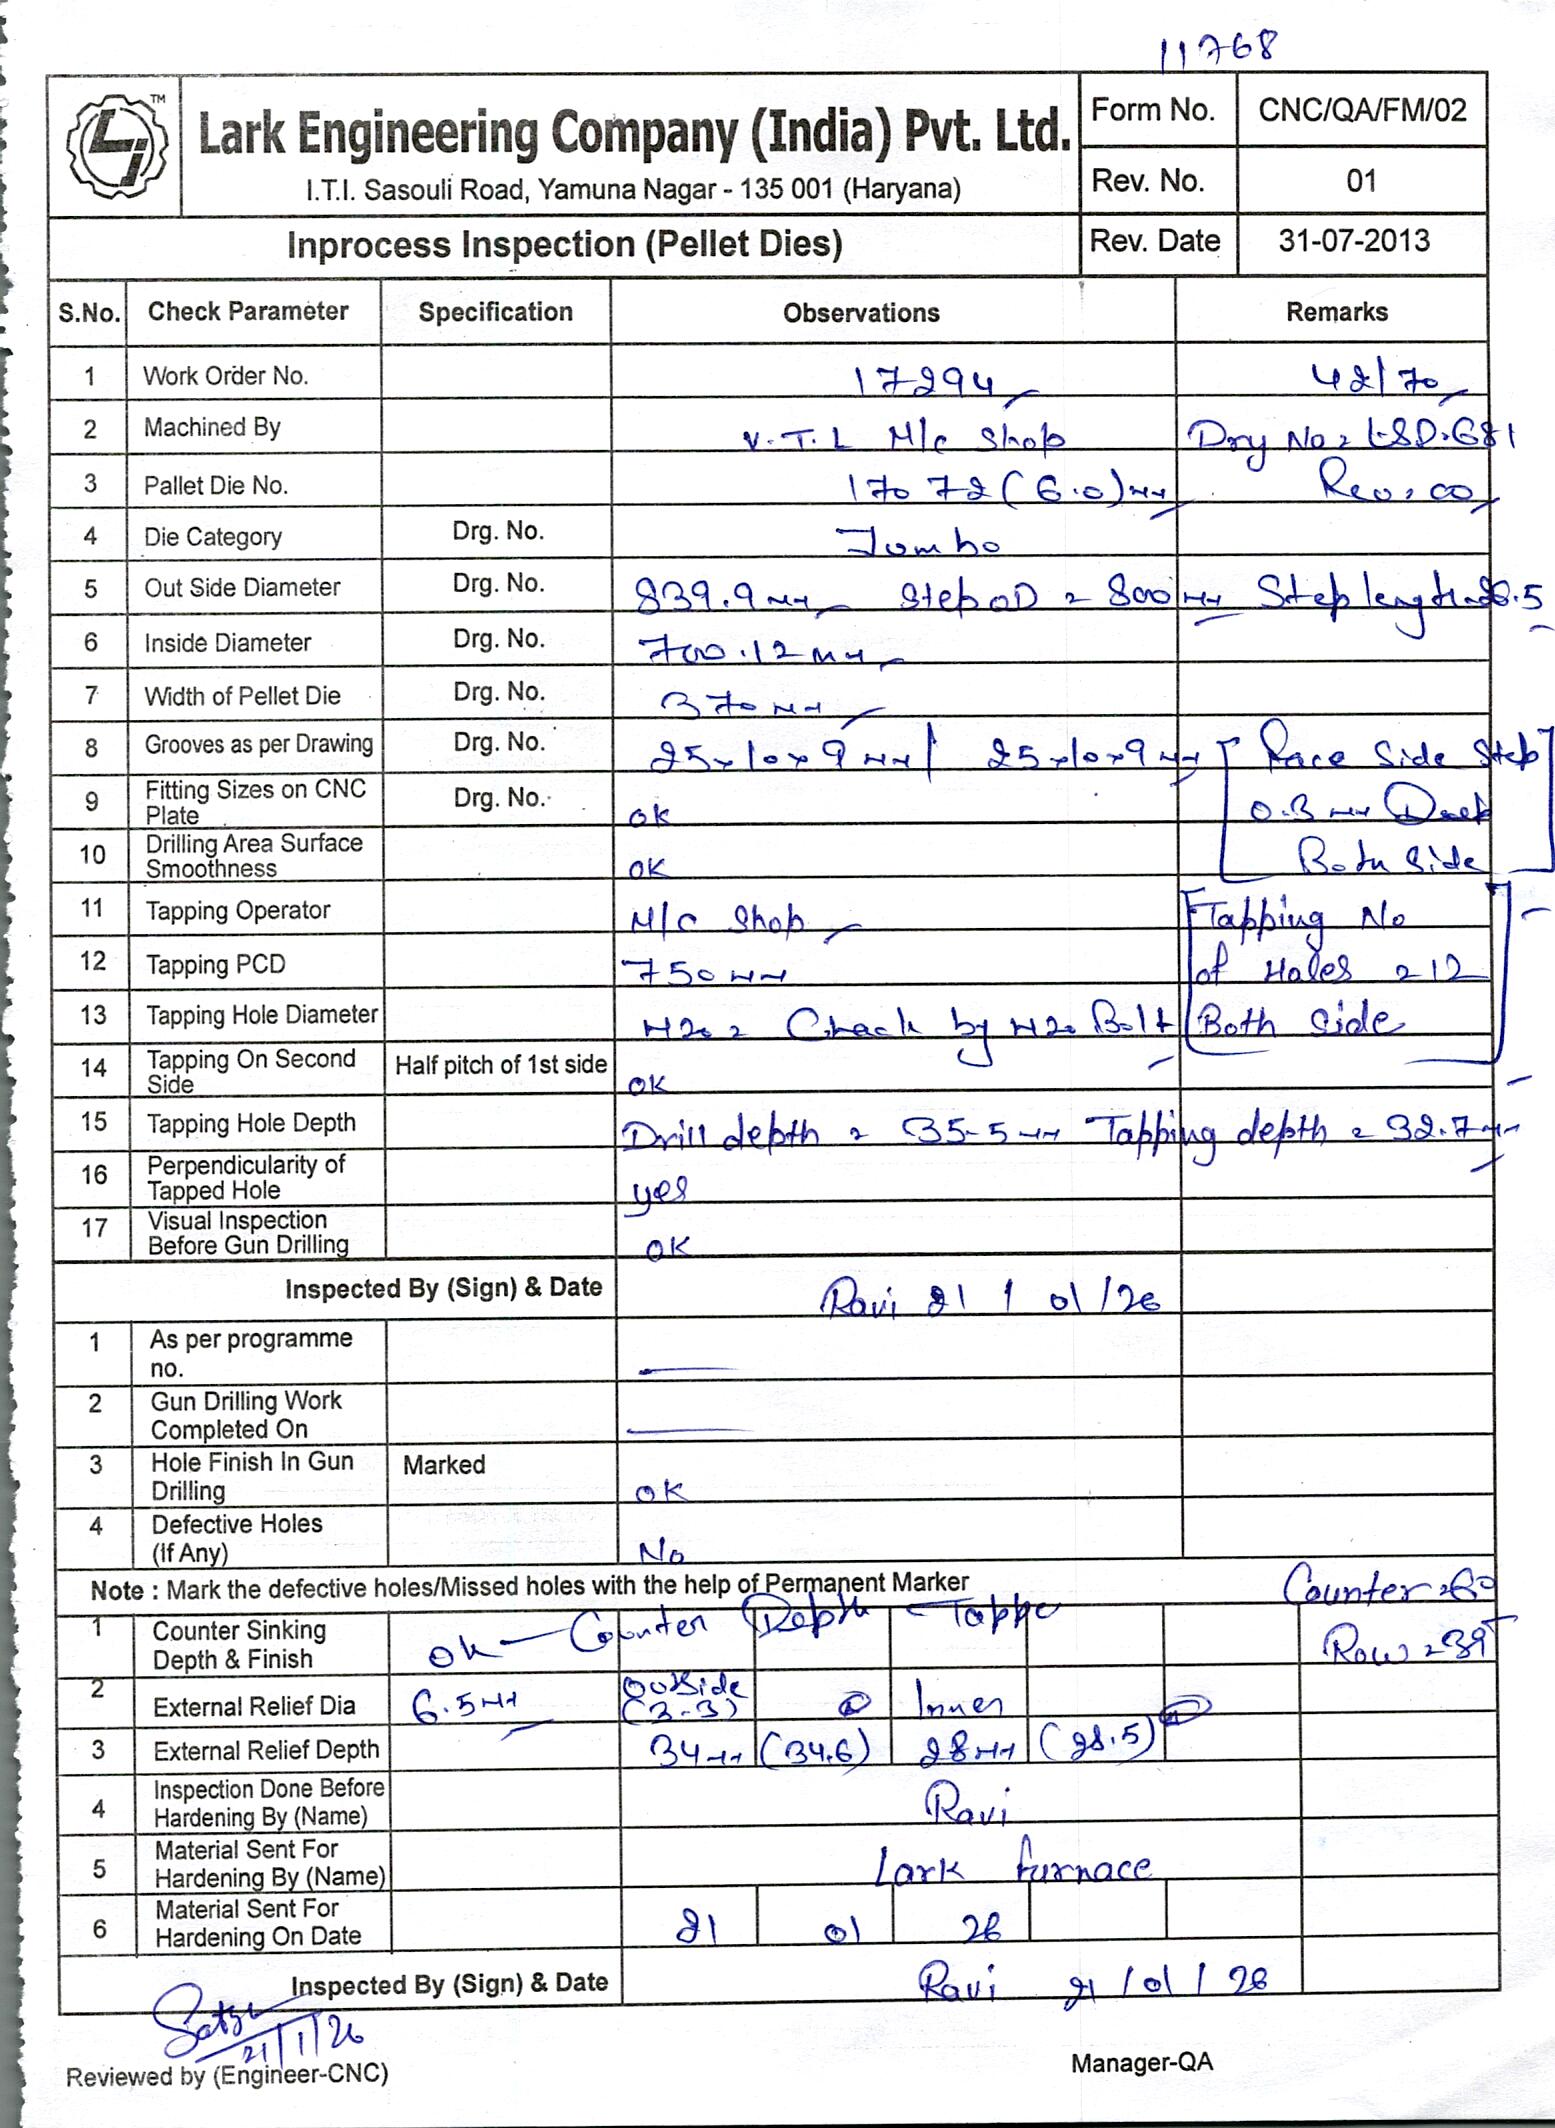 11768
TM
Lark Engineering Company (India) Pvt. Ltd.
I.T.I. Sasouli Road, Yamuna Nagar - 135 001 (Haryana)
Form No. CNC/QA/FM/02
Rev. No. 01
Inprocess Inspection (Pellet Dies) Rev. Date 31-07-2013
S.No. Check Parameter Specification Observations Remarks
1 Work Order No. 17294 42/70
2 Machined By V.T.L M/c Shop Drg No = LSD.681
3 Pallet Die No. 17072 (6.0) mm Rev. 00
4 Die Category Drg. No. Jumbo
5 Out Side Diameter Drg. No. 839.9 mm Step OD = 800 mm Step length = 26.5
6 Inside Diameter Drg. No. 700.12 mm
7 Width of Pellet Die Drg. No. 370 mm
8 Grooves as per Drawing Drg. No. 25x10x9 mm / 25x10x9 mm Race Side Step
9 Fitting Sizes on CNC Plate Drg. No. ok 0.3 mm
10 Drilling Area Surface Smoothness OK Both Side
11 Tapping Operator M/C Shop Tapping No
12 Tapping PCD 750 mm of Holes = 12
13 Tapping Hole Diameter M20 = Check by M20 Bolt Both Side
14 Tapping On Second Side Half pitch of 1st side OK
15 Tapping Hole Depth Drill depth = 35.5 mm Tapping depth = 32.7 mm
16 Perpendicularity of Tapped Hole yes
17 Visual Inspection Before Gun Drilling OK
Inspected By (Sign) & Date Ravi 21 / 01 / 26
1 As per programme no.
2 Gun Drilling Work Completed On
3 Hole Finish In Gun Drilling Marked OK
4 Defective Holes (If Any) No
Note : Mark the defective holes/Missed holes with the help of Permanent Marker Counter = 60
1 Counter Sinking Depth & Finish ok — Counter Depth Row = 39
2 External Relief Dia 6.5 mm Outside (3-3) Inner
3 External Relief Depth 34 mm (34.6) 28 mm (28.5)
4 Inspection Done Before Hardening By (Name) Ravi
5 Material Sent For Hardening By (Name) Lark furnace
6 Material Sent For Hardening On Date 21 01 26
Inspected By (Sign) & Date Ravi 21 / 01 / 26
21/1/26
Reviewed by (Engineer-CNC) Manager-QA